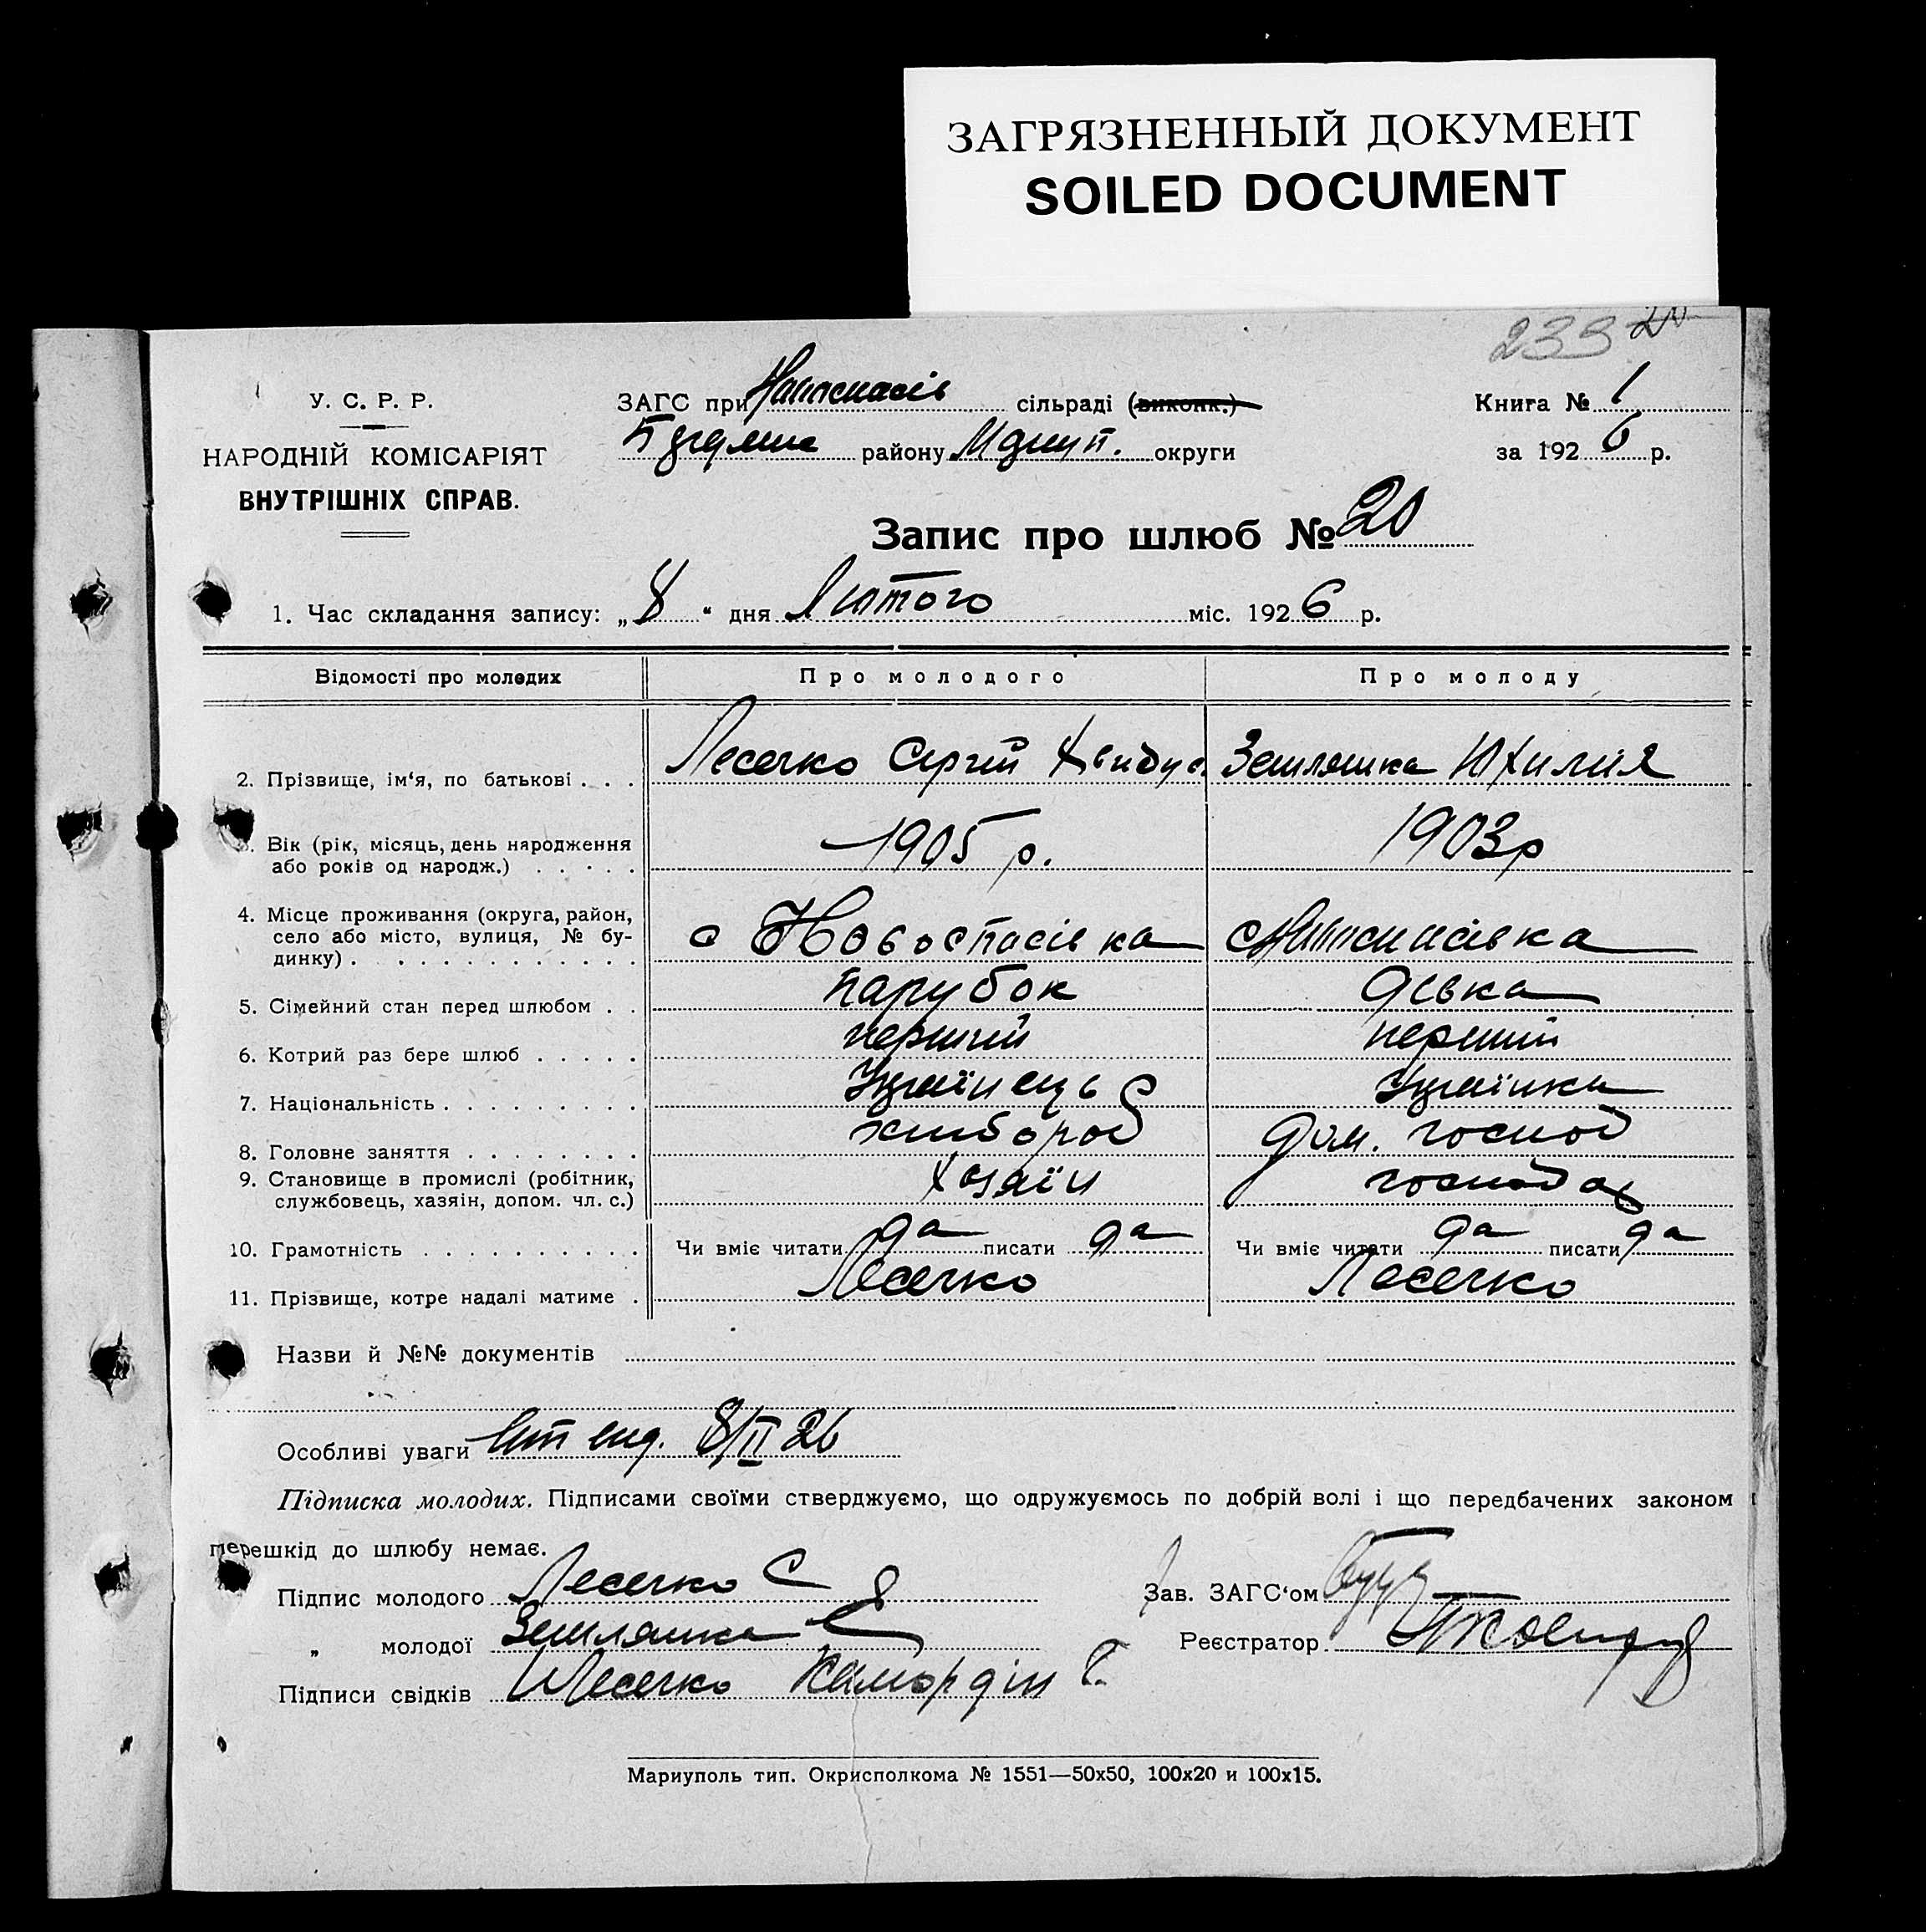 ЗАГРЯЗНЕННЫЙ ДОКУМЕНТ
SOILED DOCUMENT
233 20
У. С. Р. Р.
НАРОДНІЙ КОМІСАРІЯТ
ВНУТРІШНІХ СПРАВ.
ЗАГС при сільраді (виконк.)
району Маріуп. округи
Книга № 1
за 1926 р.
Запис про шлюб № 20
1. Час складання запису: „8“ дня Лютого міс. 1926 р.
Відомості про молодих Про молодого Про молоду
2. Прізвище, ім‘я, по батькові . . . Лесечко Сергій Землянка
3. Вік (рік, місяць, день народження
або років од народж.) . . . . . 1905 р. 1903р
4. Місце проживання (округа, район,
село або місто, вулиця, № бу-
динку) . . . . . . . . . . . . . с Новоспасівка
5. Сімейний стан перед шлюбом . . парубок дівка
6. Котрий раз бере шлюб . . . . . перший перший
7. Національність . . . . . . . . . Українець Українка
8. Головне заняття . . . . . . . . хлібороб дом. господ
9. Становище в промислі (робітник,
службовець, хазяін, допом. чл. с.) Хозяїн господар
10. Грамотність . . . . . . . . . . Чи вміє читати да писати да Чи вміє читати да писати да
11. Прізвище, котре надалі матиме . Лесечко Лесечко
Назви й №№ документів
Особливі уваги 8/II 26
Підписка молодих. Підписами своїми стверджуємо, що одружуємось по добрій волі і що передбачених законом
перешкід до шлюбу немає.
Підпис молодого Лесечко С Зав. ЗАГС‘ом
„ молодої Землянка Е Реєстратор
Підписи свідків Лесечко
Мариуполь тип. Окрисполкома № 1551—50х50, 100х20 и 100х15.